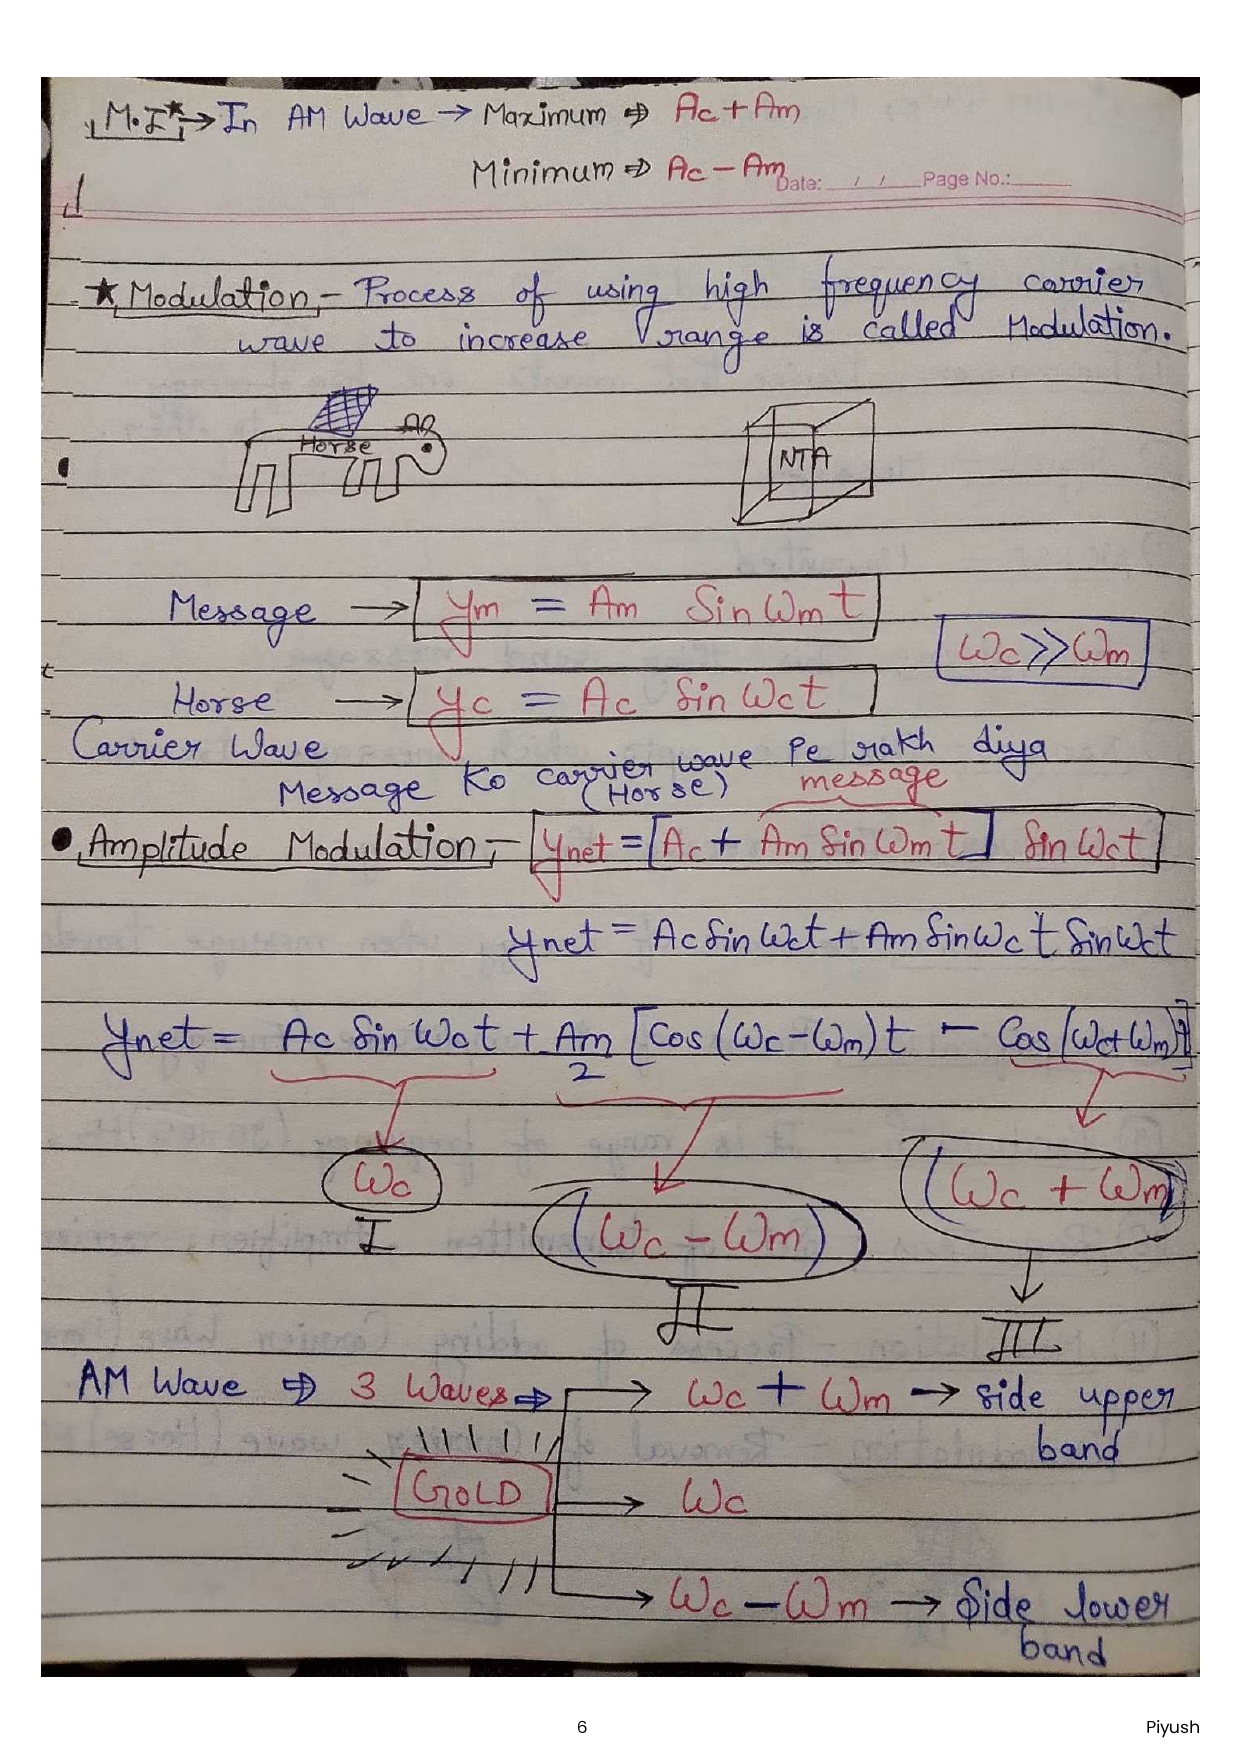 M.I* → In AM Wave → Maximum ⇒ Ac + Am
Minimum ⇒ Ac − Am
Date: / / Page No.:
★ Modulation - Process of using high frequency carrier
wave to increase range is called Modulation.
Horse
NTA
Message → ym = Am Sin ωmt
ωc >> ωm
Horse → yc = Ac Sin ωct
Carrier Wave
Message Ko carrier wave Pe rakh diya
(Horse)
message
• Amplitude Modulation - ynet = [Ac + Am Sin ωmt] Sin ωct
ynet = Ac Sin ωct + Am Sin ωct Sin ωct
ynet = Ac Sin ωct + Am/2 [Cos (ωc − ωm)t − Cos (ωc + ωm)t]
ωc
I
(ωc − ωm)
II
(ωc + ωm)
III
AM Wave ⇒ 3 Waves ⇒ → ωc + ωm → Side upper
band
GOLD → ωc
→ ωc − ωm → Side lower
band
6
Piyush